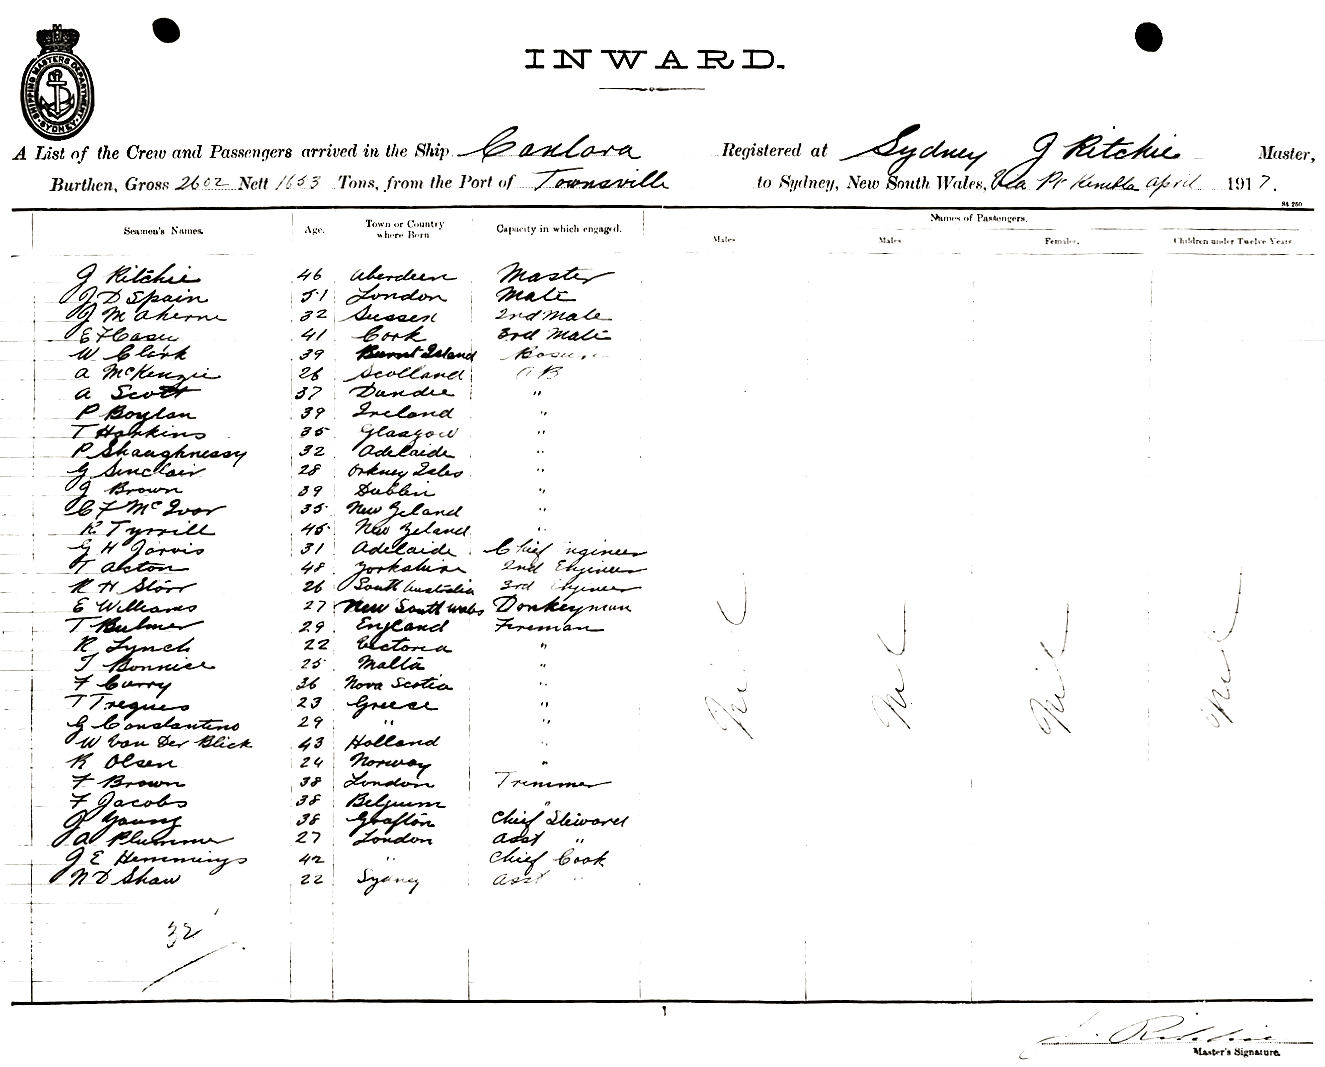 INWARD.
SHIPPING MASTERS DEPARTMENT
SYDNEY
A List of the Crew and Passengers arrived in the Ship Canlara Registered at Sydney J Ritchie Master,
Burthen, Gross 2602 Nett 1653 Tons, from the Port of Townsville to Sydney, New South Wales, Via Pt Kembla April 1917.
S4 250
Seamen's Names. Age. Town or Country where Born Capacity in which engaged. Names of Passengers.
Males Males Females. Children under Twelve Years
J Ritchie 46 Aberdeen Master
J D Spain 51 London Mate
J M Aherne 32 Sussex 2nd Mate
E F Casey 41 Cork 3rd Mate
W Clark 39 Burnt Island Bosun
A McKenzie 26 Scotland AB
A Scott 37 Dundee "
P Boylan 39 Ireland "
T Harkins 35 Glasgow "
P Shaughnessy 32 Adelaide "
G Sinclair 28 Orkney Isles "
J Brown 39 Dublin "
C F McIvor 35 New Zeland "
R Tyrrill 45 New Zeland "
G H Jarvis 31 Adelaide Chief Engineer
T Acton 48 Yorkshire 2nd Engineer
R H Storr 26 South Australia 3rd Engineer
E Williams 27 New South Wales Donkeyman
T Bulmer 29 England Fireman
R Lynch 22 Victoria "
T Bonnice 25 Malta "
F Curry 36 Nova Scotia "
T Tregues 23 Greece "
G Constantino 29 " "
W Van Der Blick 43 Holland "
R Olsen 24 Norway "
F Brown 38 London Trimmer
F Jacobs 38 Belgium "
J Young 38 Grafton Chief Steward
A Plummer 27 London Asst "
J E Hemmings 42 " Chief Cook
N D Shaw 22 Sydney Asst "
Nil Nil Nil Nil
32
J. Ritchie
Master's Signature.